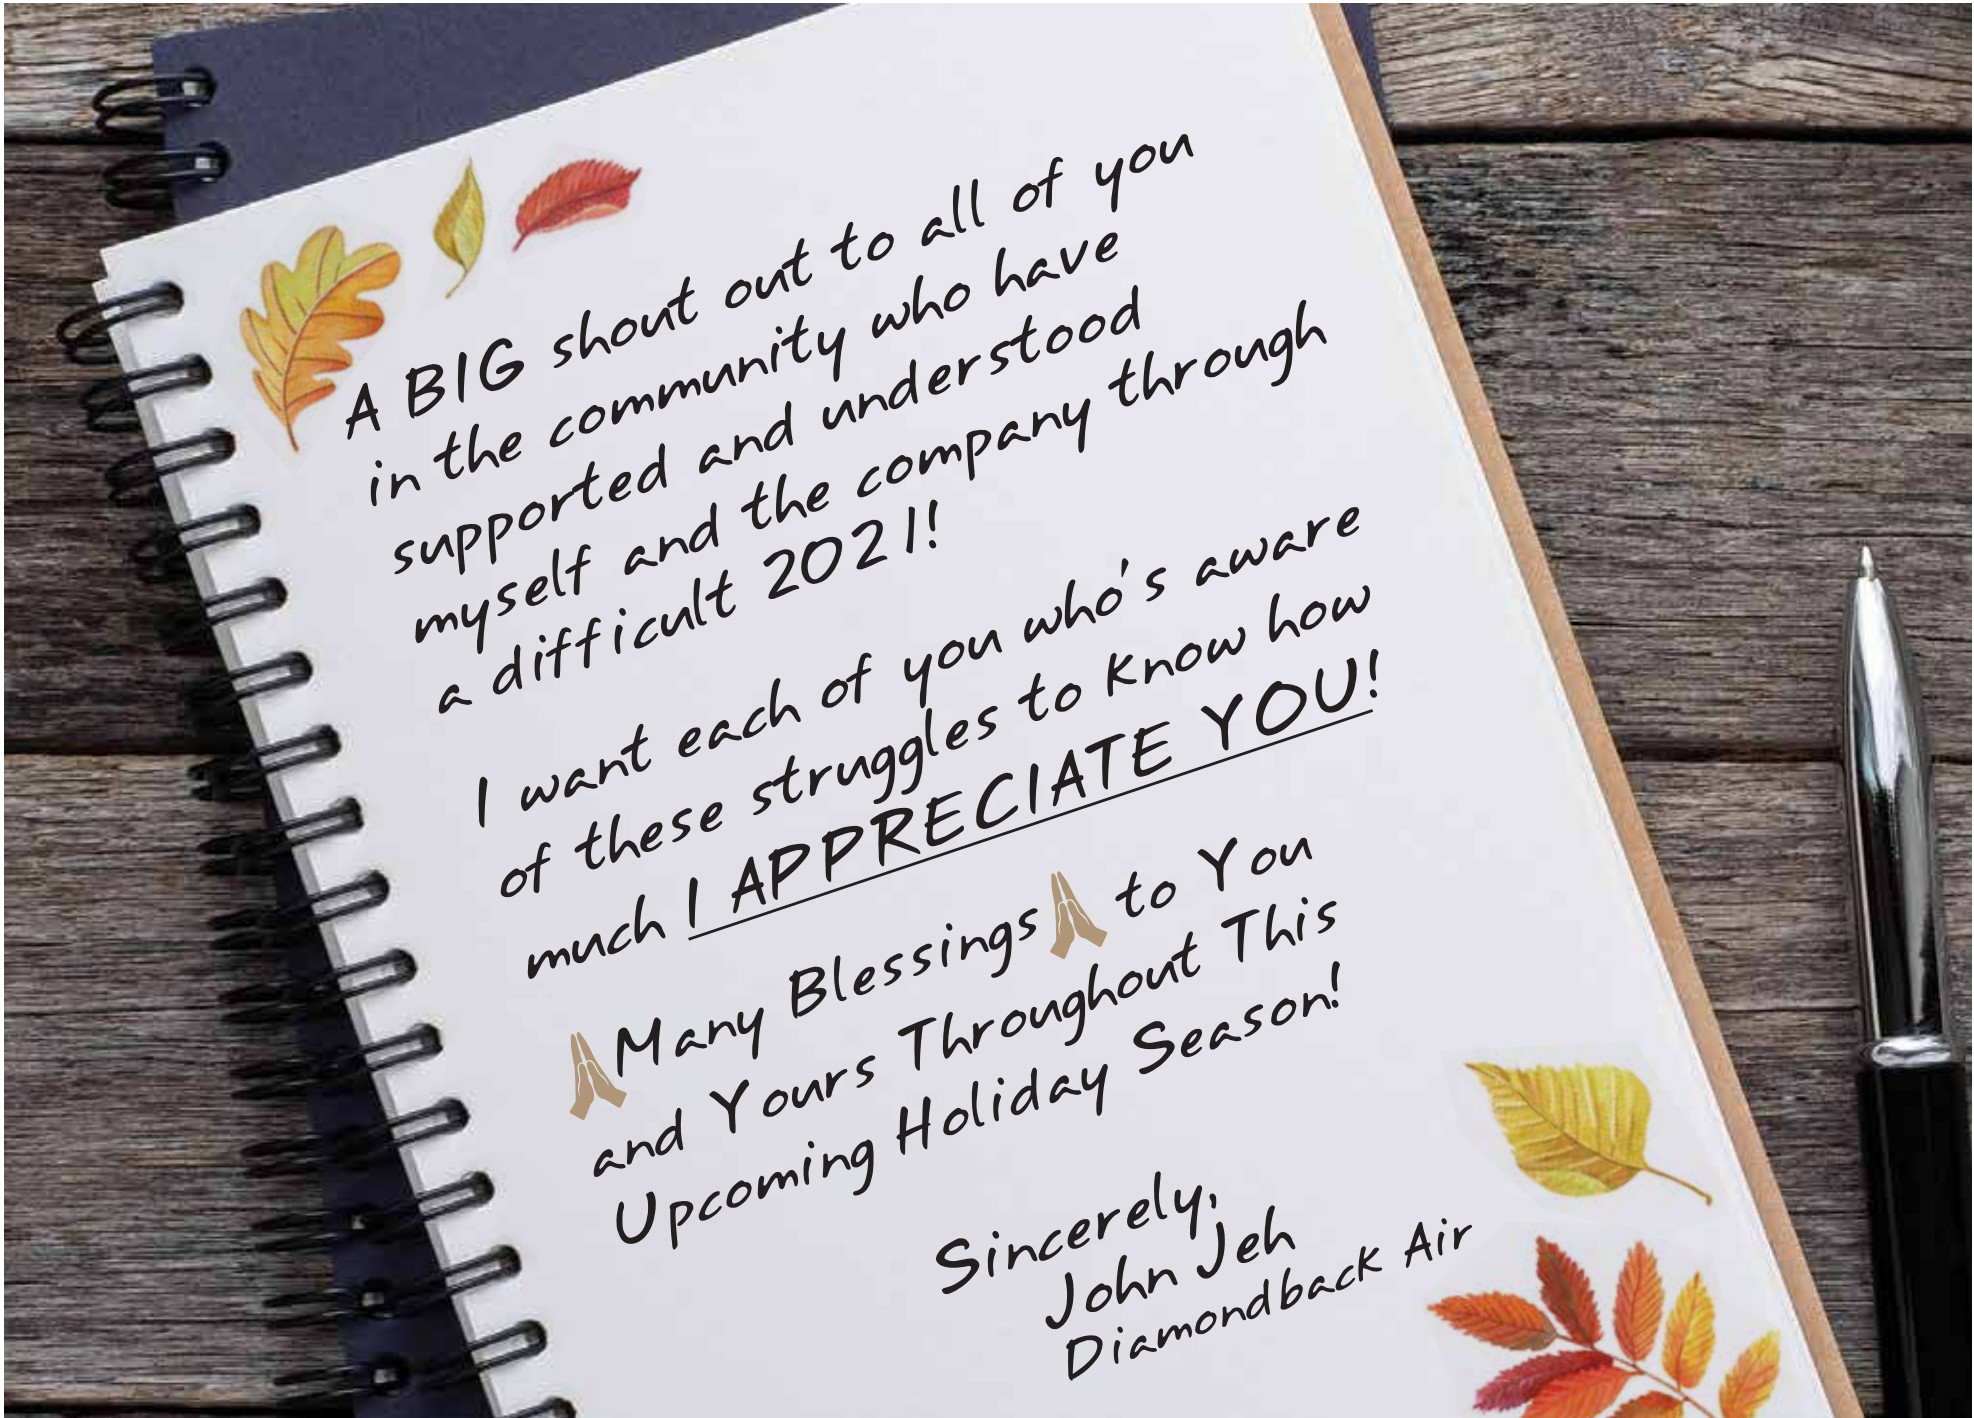 A BIG shout out to all of you
in the community who have
supported and understood
myself and the company through
a difficult 2021!
I want each of you who's aware
of these struggles to know how
much I APPRECIATE YOU!
🙏Many Blessings🙏 to You
and Yours Throughout This
Upcoming Holiday Season!
Sincerely,
John Jeh
Diamondback Air